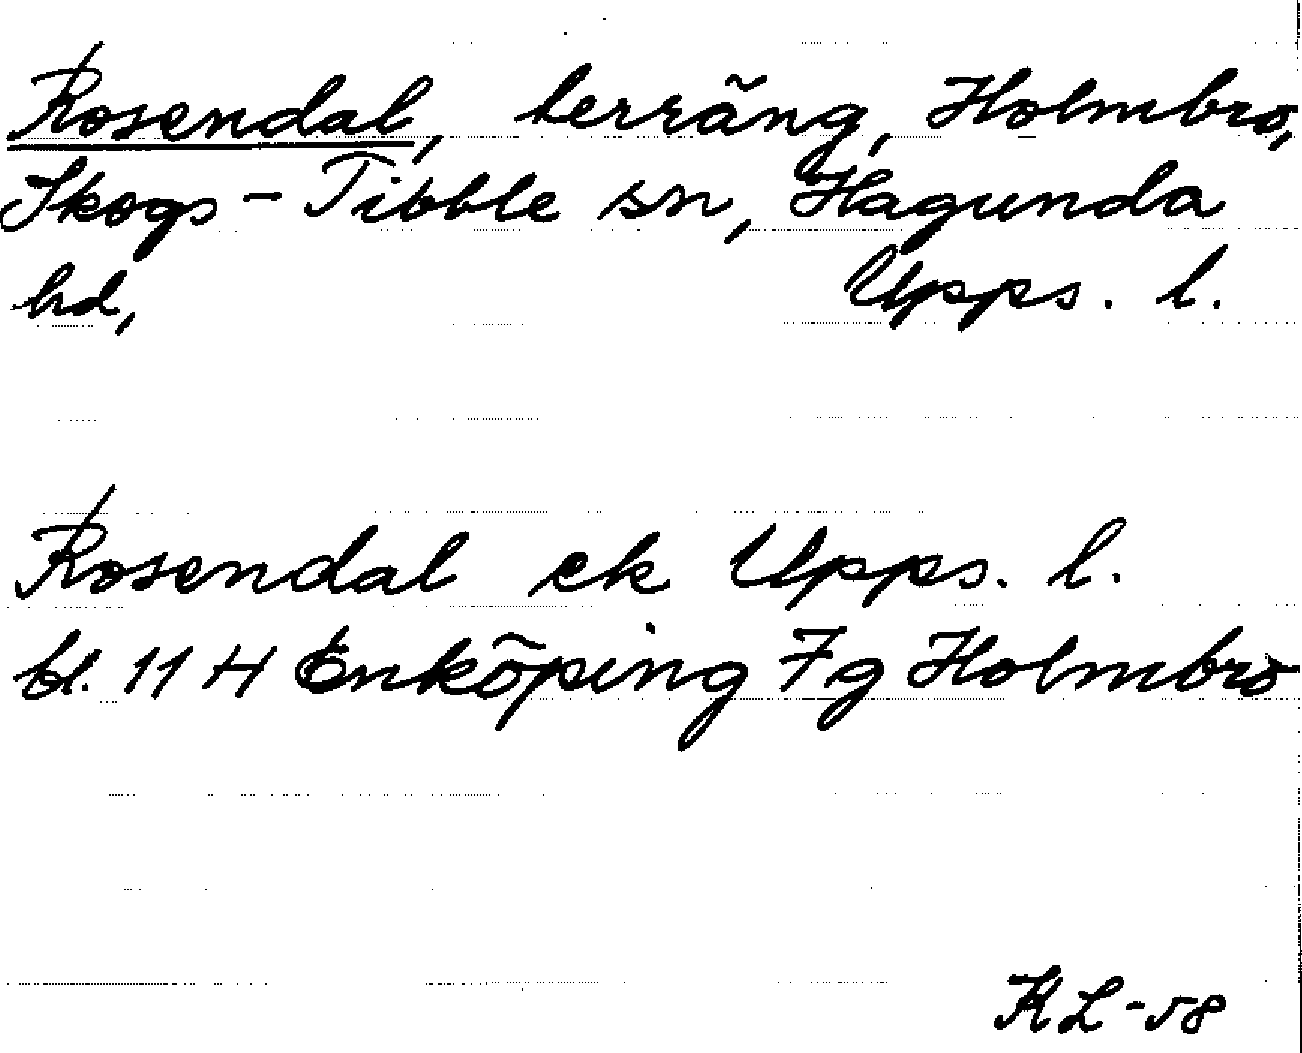 Rosendal, terräng, Holmbro,
Skogs-Tibble sn, Hagunda
hd, Upps. l.
Rosendal ek Upps. l.
bl. 11 H Enköping 7g Holmbro
KL-58